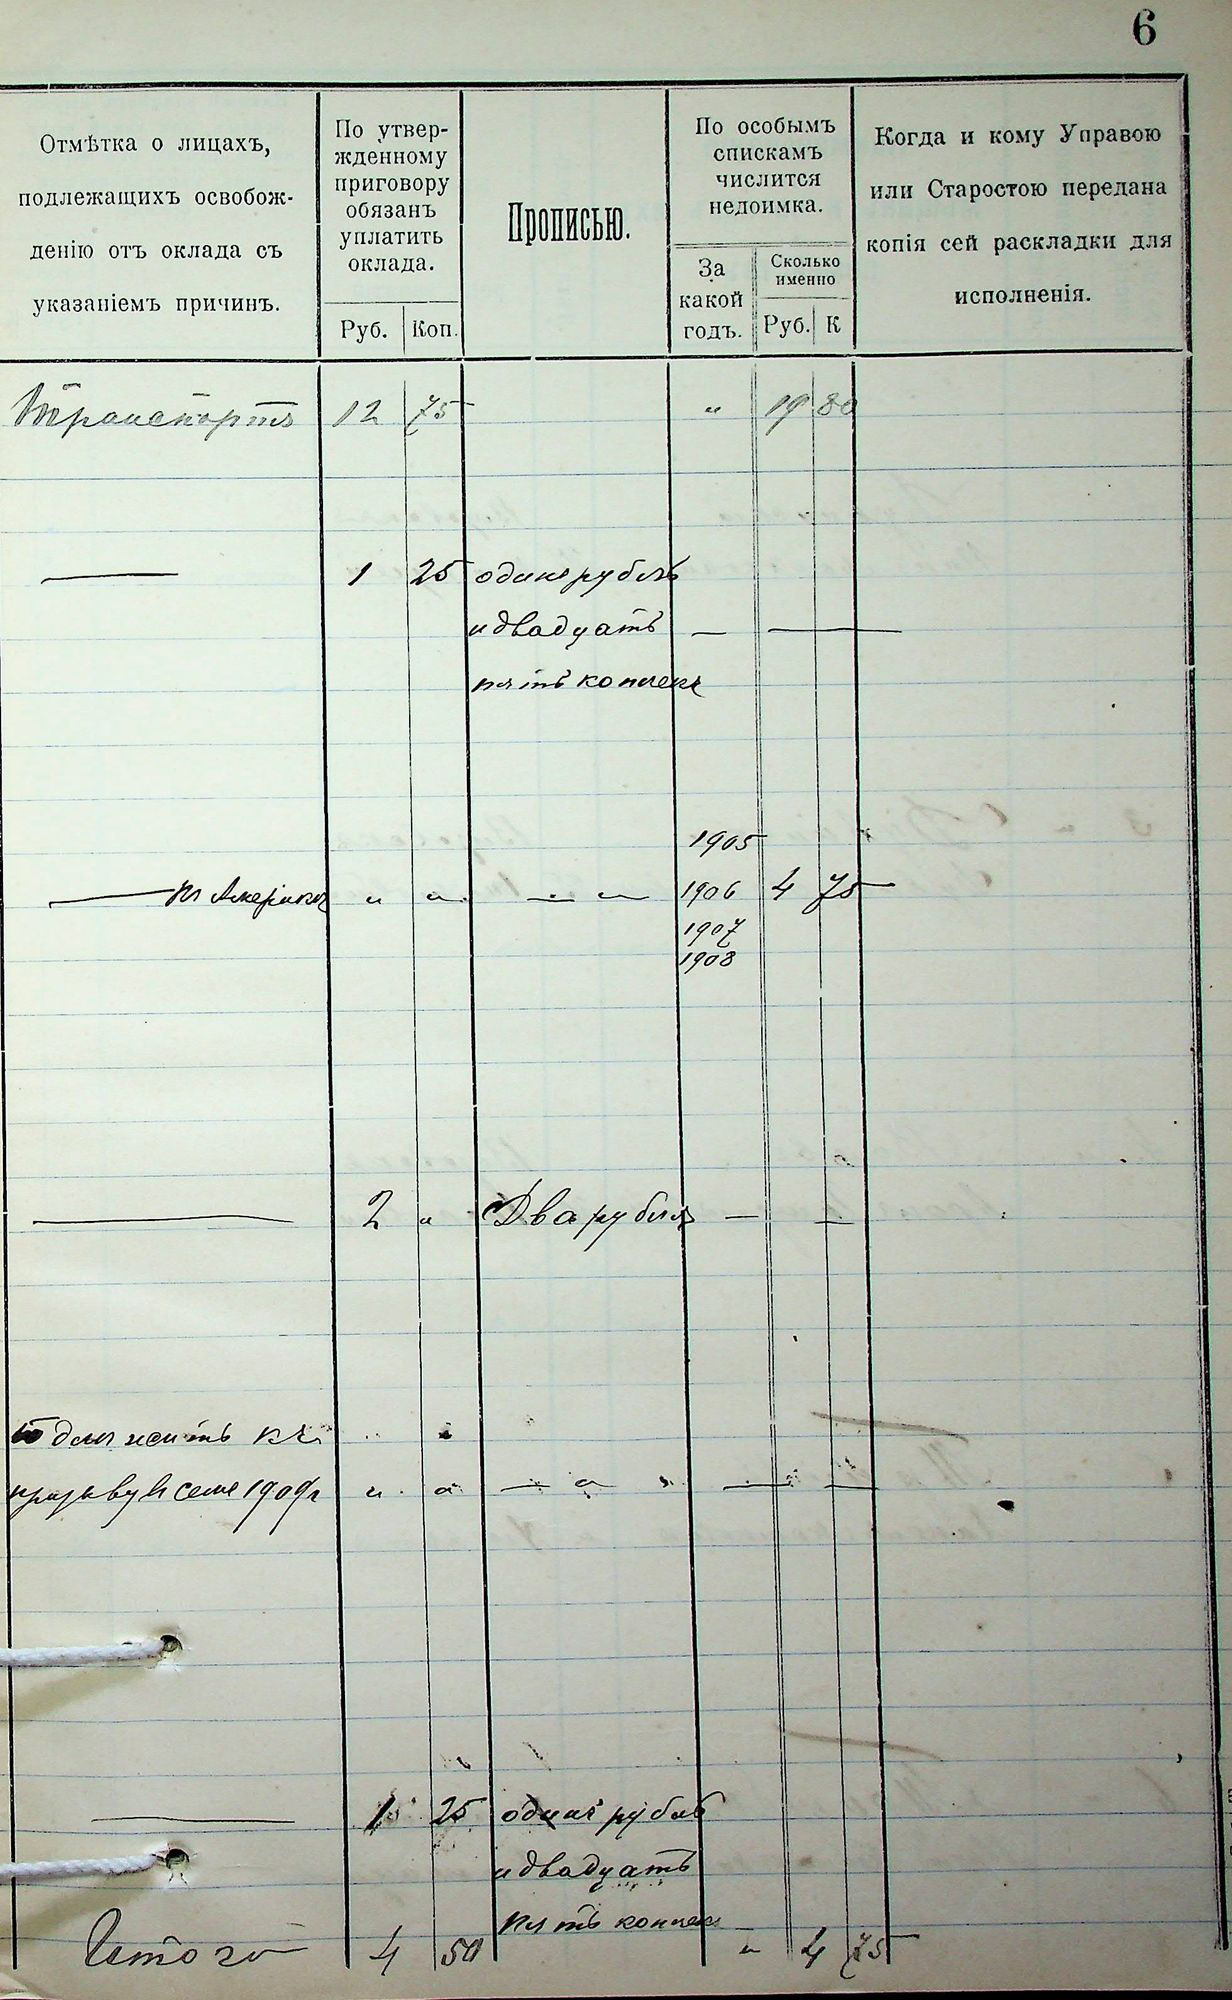 6
Отмѣтка о лицахъ,
подлежащихъ освобож-
денію отъ оклада съ
указаніемъ причинъ.
По утвер-
жденному
приговору
обязанъ
уплатить
оклада.
Руб. Коп.
Прописью.
По особымъ
спискамъ
числится
недоимка.
За
какой
годъ.
Сколько
именно
Руб. К
Когда и кому Управою
или Старостою передана
копія сей раскладки для
исполненія.
Транспортъ 12 75 " 19 80
— 1 25 одинъ рубль
и двадцать — —
пять копѣекъ
1905
— въ Америкѣ " " — " 1906 4 75
1907
1908
— 2 " Два рубля — —
Подлежитъ къ
призыву въ семъ 1909 г " " — " — —
— 1 25 одинъ рубль
и двадцать
пять копѣекъ
Итого 4 50 " 4 75